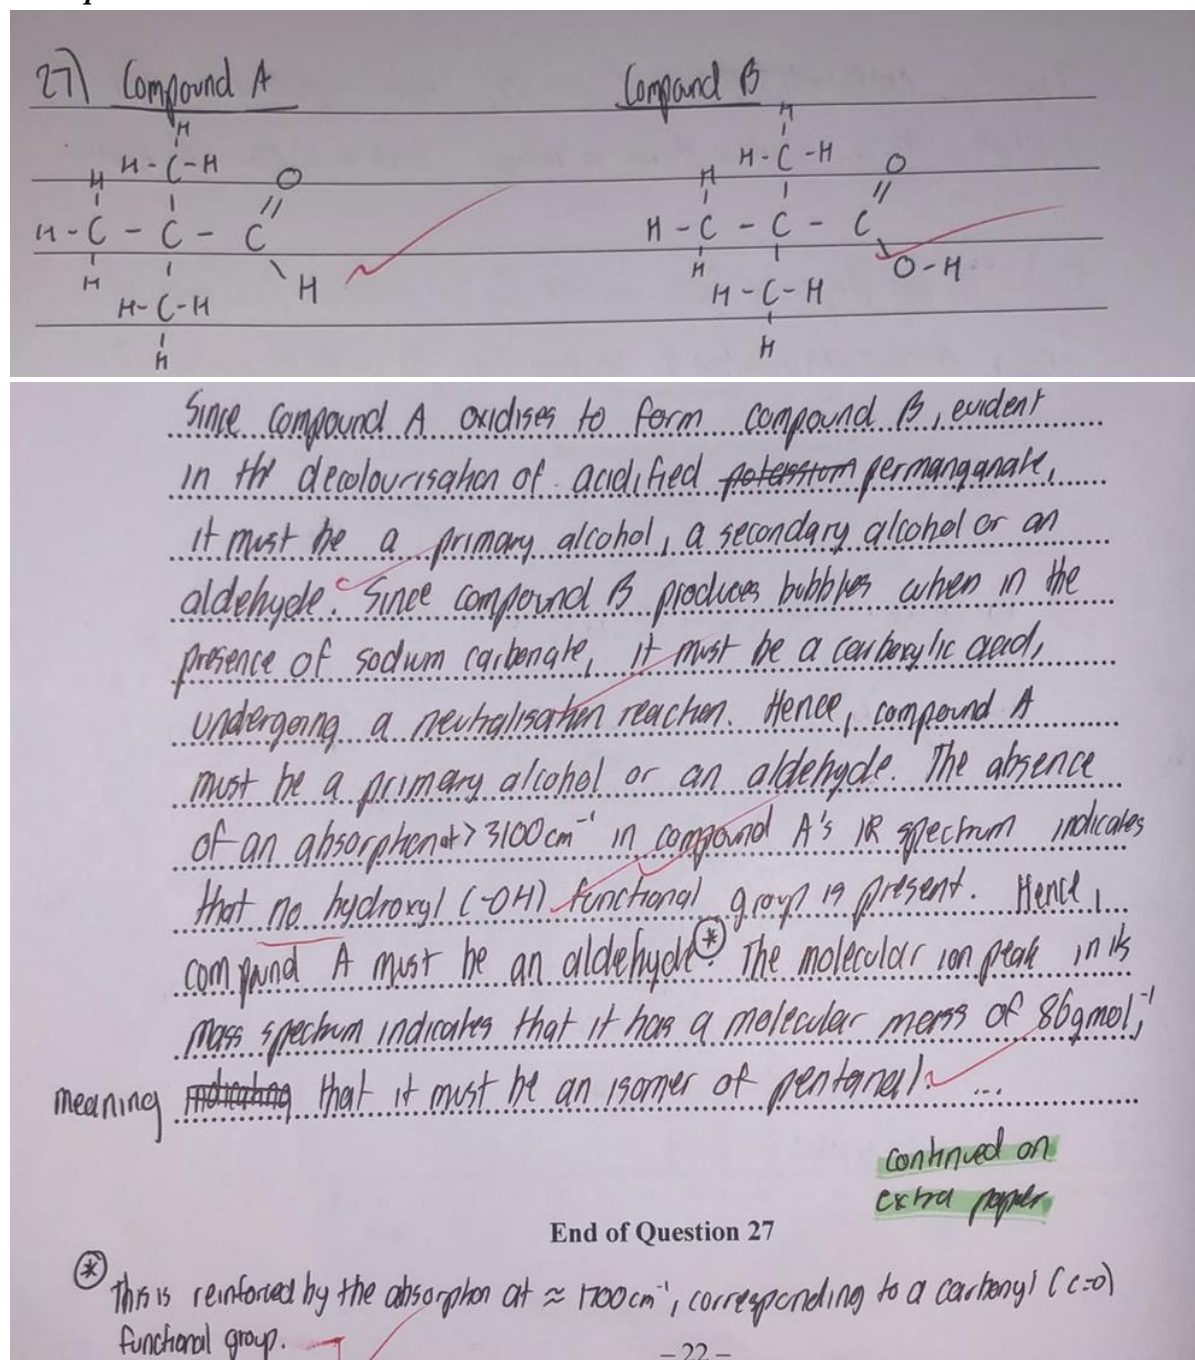 27) Compound A
Compound B
H
H
H - C - H
H - C - H
H
O
H
O
H - C - C - C
H - C - C - C
H
H
H
O - H
H - C - H
H - C - H
H
H
Since compound A oxidises to form compound B, evident
in the decolourisation of acidified potassium permanganate,
it must be a primary alcohol, a secondary alcohol or an
aldehyde. Since compound B produces bubbles when in the
presence of sodium carbonate, it must be a carboxylic acid,
undergoing a neutralisation reaction. Hence, compound A
must be a primary alcohol or an aldehyde. The absence
of an absorption at > 3100 cm⁻¹ in compound A's IR spectrum indicates
that no hydroxyl (-OH) functional group is present. Hence,
compound A must be an aldehyde*. The molecular ion peak in its
mass spectrum indicates that it has a molecular mass of 86gmol⁻¹,
meaning indicating that it must be an isomer of pentanal. ...
continued on
extra paper
End of Question 27
* This is reinforced by the absorption at ≈ 1700cm⁻¹, corresponding to a carbonyl (C=O)
functional group.
– 22 –